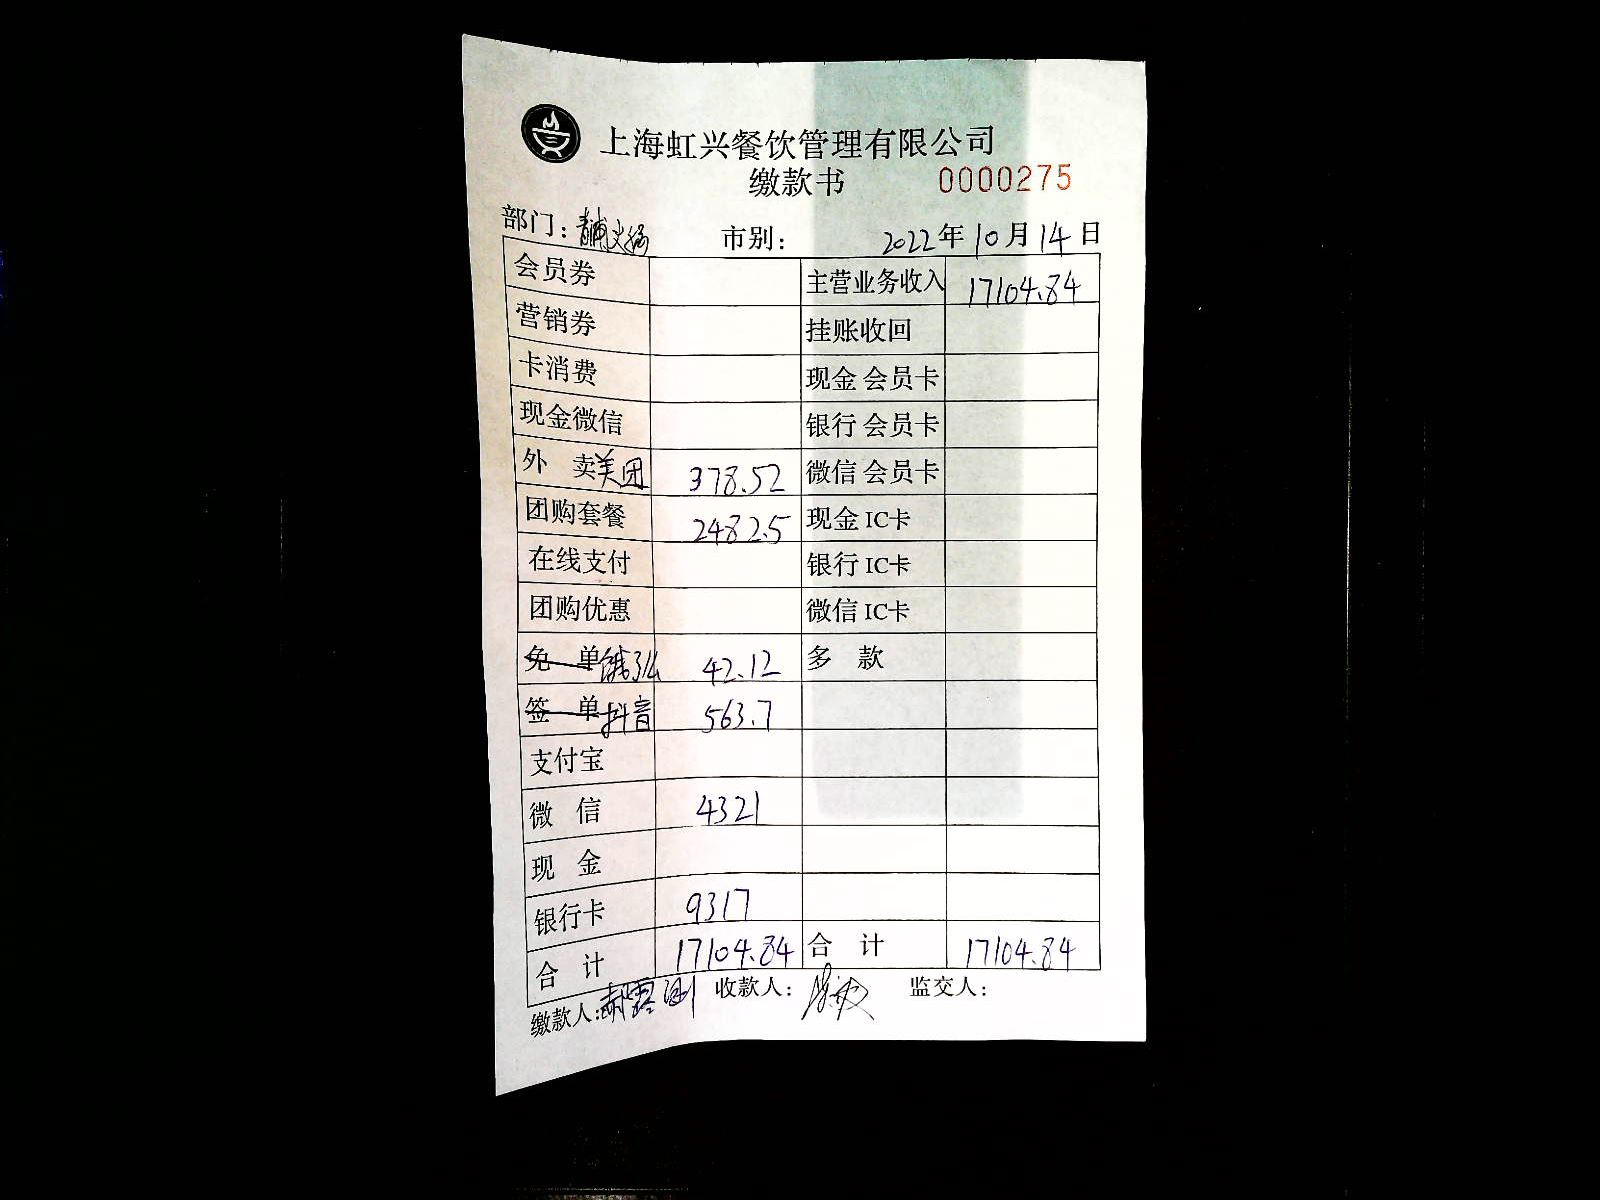 上海虹兴餐饮管理有限公司
缴款书 0000275
部门: 市别: 2022年10月14日
会员券 主营业务收入 17104.84
营销券 挂账收回
卡消费 现金 会员卡
现金微信 银行 会员卡
外 卖美团 378.52 微信 会员卡
团购套餐 2482.5 现金 IC卡
在线支付 银行 IC卡
团购优惠 微信 IC卡
免 单饿了么 42.12 多 款
签 单抖音 563.7
支付宝
微 信 4321
现 金
银行卡 9317
合 计 17104.84 合 计 17104.84
缴款人: 收款人: 监交人: